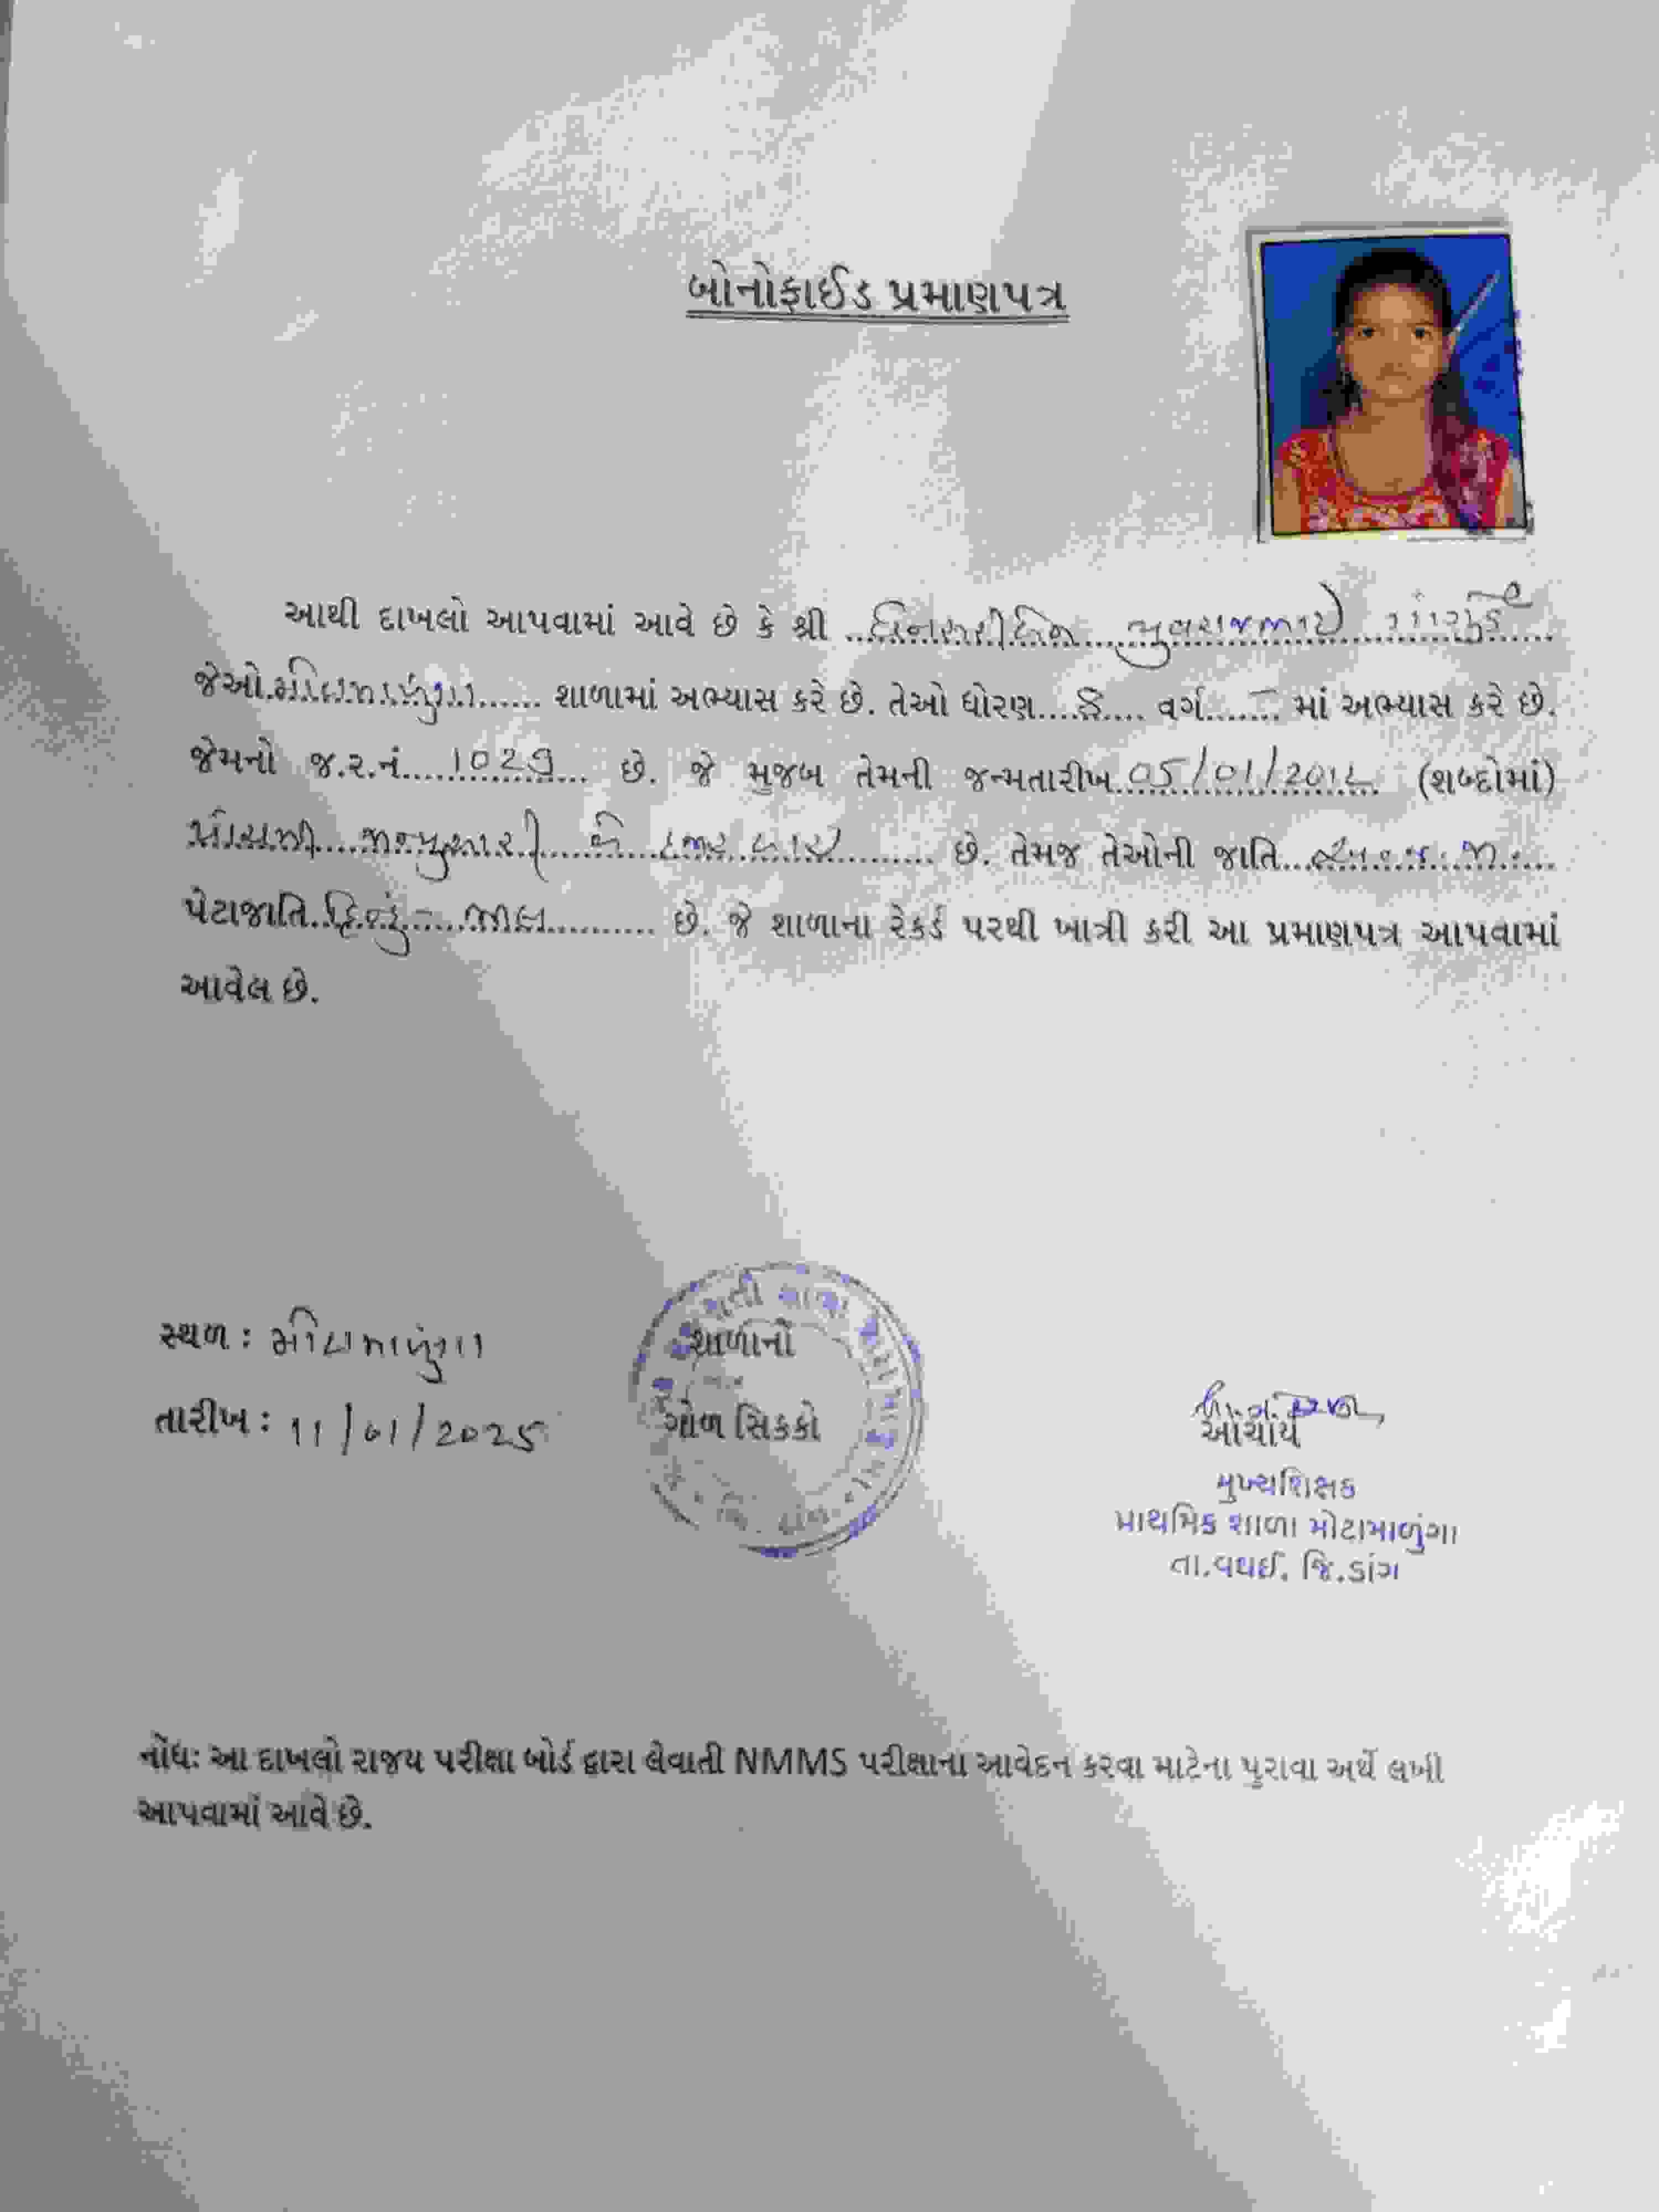 બોનોફાઈડ પ્રમાણપત્ર
આથી દાખલો આપવામાં આવે છે કે શ્રી
જેઓ મોટામાળુંગા શાળામાં અભ્યાસ કરે છે. તેઓ ધોરણ 8 વર્ગ - માં અભ્યાસ કરે છે.
જેમનો જ.ર.નં. 1029 છે. જે મુજબ તેમની જન્મતારીખ 05/01/2012 (શબ્દોમાં)
જાન્યુઆરી બે હજાર બાર છે. તેમજ તેઓની જાતિ
પેટાજાતિ હિન્દુ - ભીલ છે. જે શાળાના રેકર્ડ પરથી ખાત્રી કરી આ પ્રમાણપત્ર આપવામાં
આવેલ છે.
સ્થળ : મોટામાળુંગા
તારીખ : 11/01/2025
શાળાનો
ગોળ સિક્કો
આચાર્ય
મુખ્યશિક્ષક
પ્રાથમિક શાળા મોટામાળુંગા
તા.વઘઈ. જિ.ડાંગ
નોંધઃ આ દાખલો રાજય પરીક્ષા બોર્ડ દ્વારા લેવાતી NMMS પરીક્ષાના આવેદન કરવા માટેના પુરાવા અર્થે લખી
આપવામાં આવે છે.